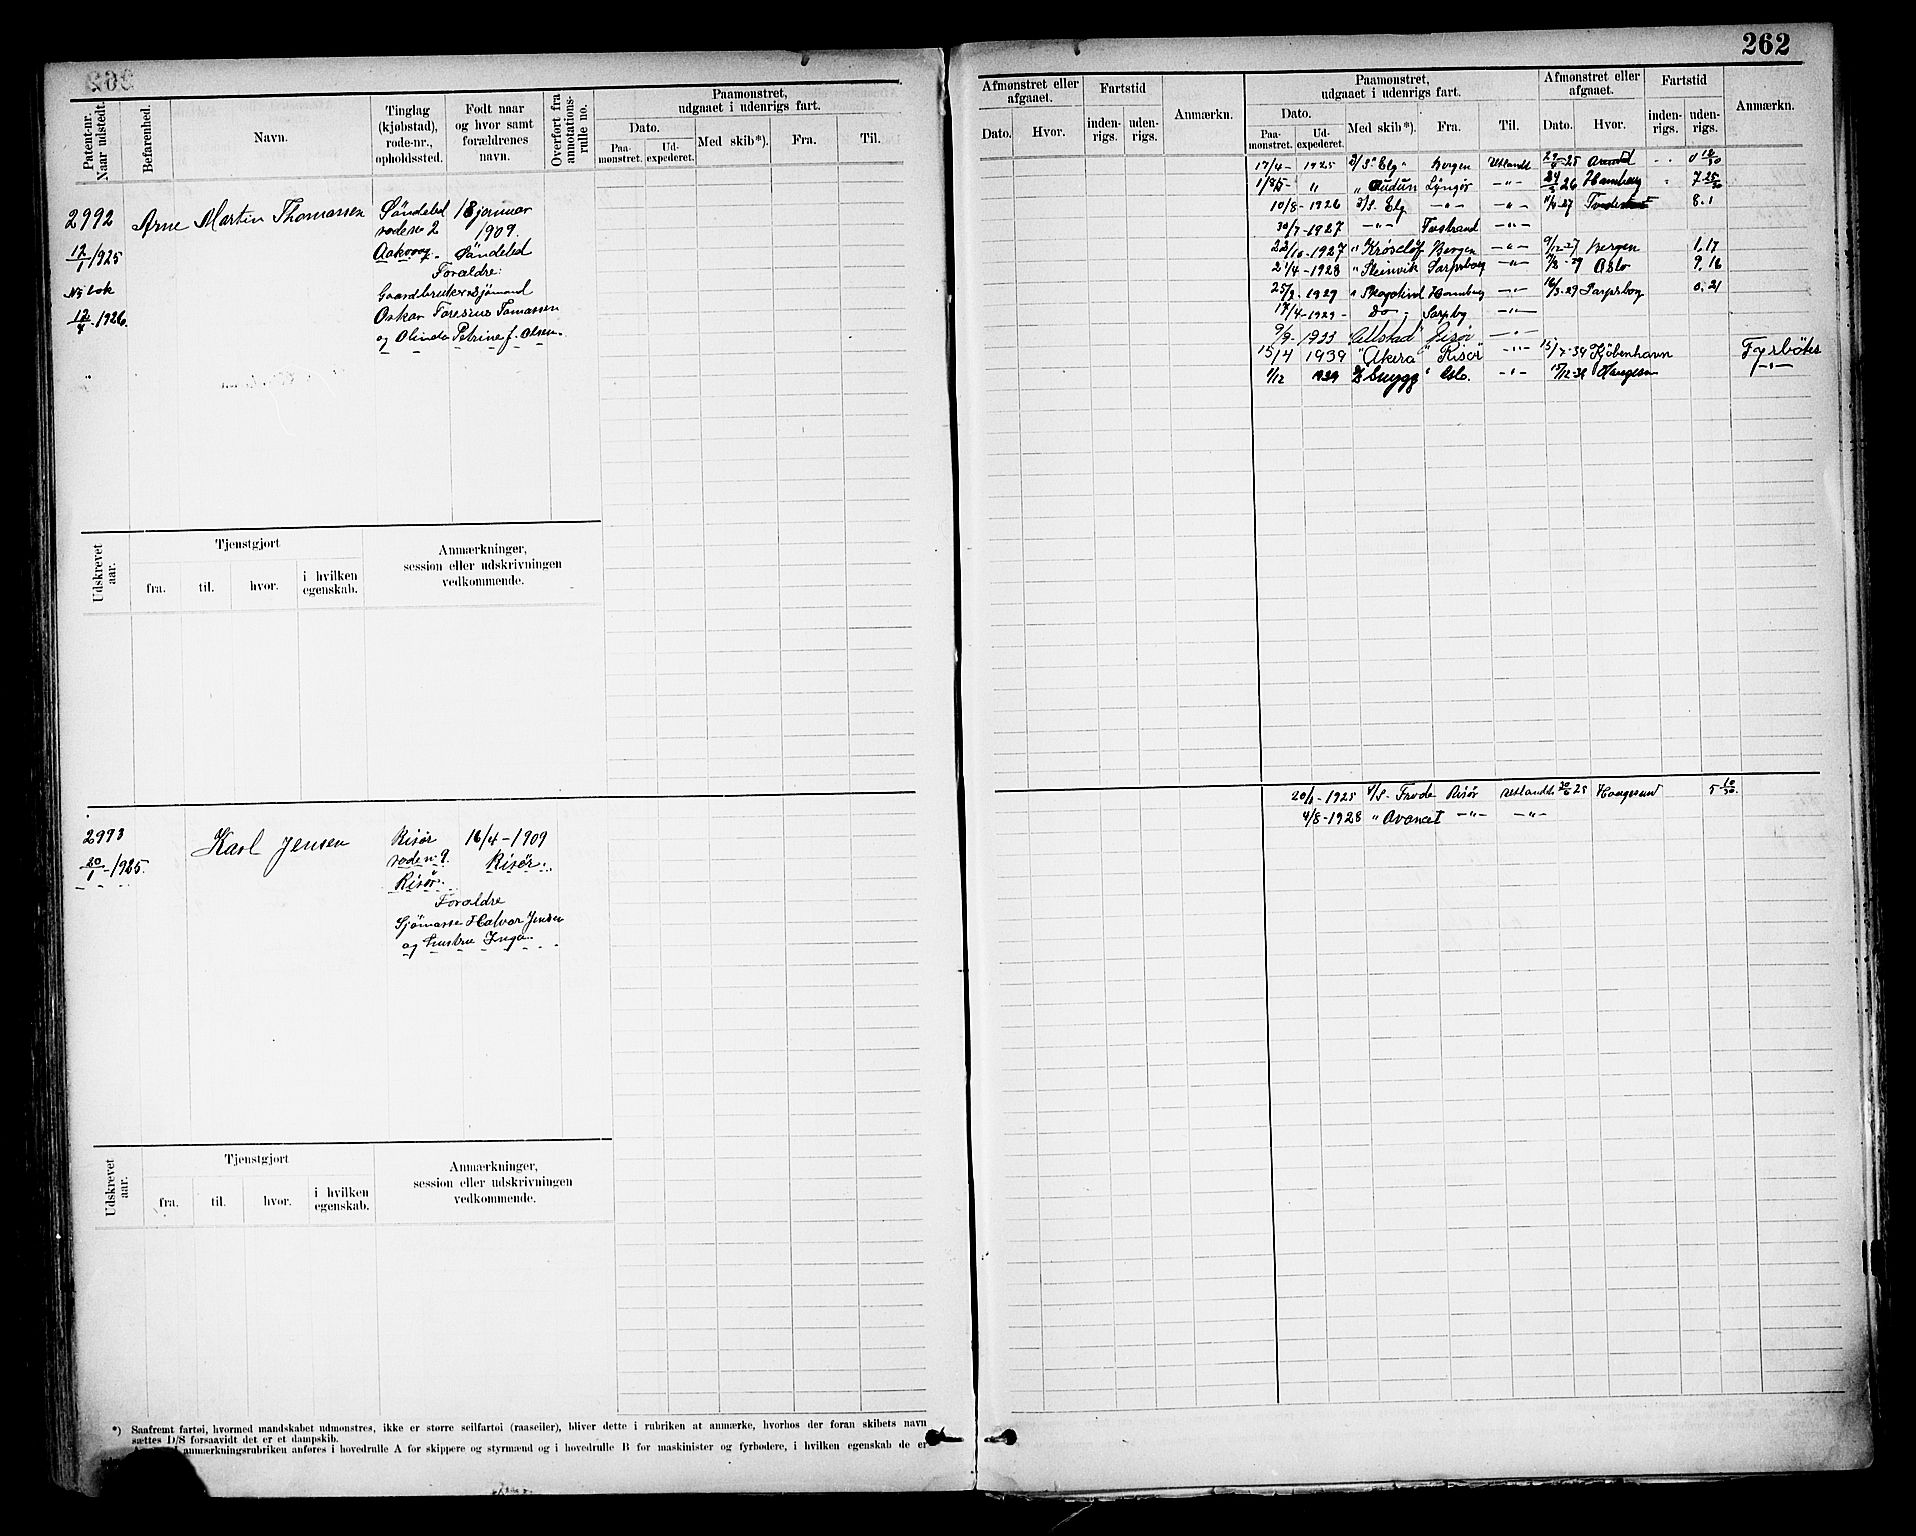 262
Patent-nr. Naar udstedt.
Befarenhed.
Navn.
Tinglag (kjøbstad), rode-nr., opholdssted.
Født naar og hvor samt forældrenes navn.
Overført fra annotationsrulle no.
Paamønstret, udgaaet i udenrigs fart.
Dato.
Paamønstret.
Udexpederet.
Med skib*).
Fra.
Til.
2992 Arne Martin Thomassen Søndeled 18 januar
rode no 2 1909.
12/1 1925 Søndeled
Forældre:
Ny bok Gaardbruker Sjømand
12/4 1926. Oskar Tomassen
og Olinda Petrine f. Olsen.
Udskrevet aar.
Tjenstgjort
fra. til. hvor. i hvilken egenskab.
Anmærkninger, session eller udskrivningen vedkommende.
2993 Karl Jensen Risør 16/4-1909
20/1-1925. rode nr 9. Risør.
Risør.
Forældre
Halvor Jensen
og hustru Inga.
Udskrevet aar.
Tjenstgjort
fra. til. hvor. i hvilken egenskab.
Anmærkninger, session eller udskrivningen vedkommende.
*) Saafremt fartøi, hvormed mandskabet udmønstres, ikke er større seilfartøi (raaseiler), bliver dette i rubriken at anmærke, hvorhos der foran skibets navn
sættes D/S forsaavidt det er et dampskib.
anmærkningsrubriken anføres i hovedrulle A for skippere og styrmænd og i hovedrulle B for maskinister og fyrbødere, i hvilken egenskab de er
Afmønstret eller afgaaet.
Dato. Hvor.
Fartstid
indenrigs. udenrigs.
Anmærkn.
Paamønstret, udgaaet i udenrigs fart.
Dato.
Paamønstret. Udexpederet.
Med skib*). Fra. Til.
Afmønstret eller afgaaet.
Dato. Hvor.
Fartstid
indenrigs. udenrigs.
Anmærkn.
17/4 - 1925 D/S "Elg" Bergen Utlandt 25
" " Audun Lyngør -"- 26 Hamburg 7 25/30
10/8 - 1926 D/S. Elg -"- -"- 27 8. 1
30/7 - 1927 -"- -"-
22/10 - 1927 " Bergen -"- 9/12-27 Bergen 1. 17
21/4 - 1928 " Steinvik Sarpsborg -"- Oslo 9. 16
25/2 - 1929 " Hamburg -"- 16/3-29 Sarpsborg 0. 21
17/4 - 1929 - Do - Sarpsbg -"-
9/9 - 1933 Risør -"-
15/4 1939 "Akera" Risør -"- 15/7-39 Kjøbenhavn Fyrbøter
1/12 1939 "Snygg" Oslo. -"- 15/12-39 Haugesun -"-
1925 D/S. Frode Risør Utlandt 25 Haugesund 5 10/30.
4/8 - 1928 " Avance I -"- -"-